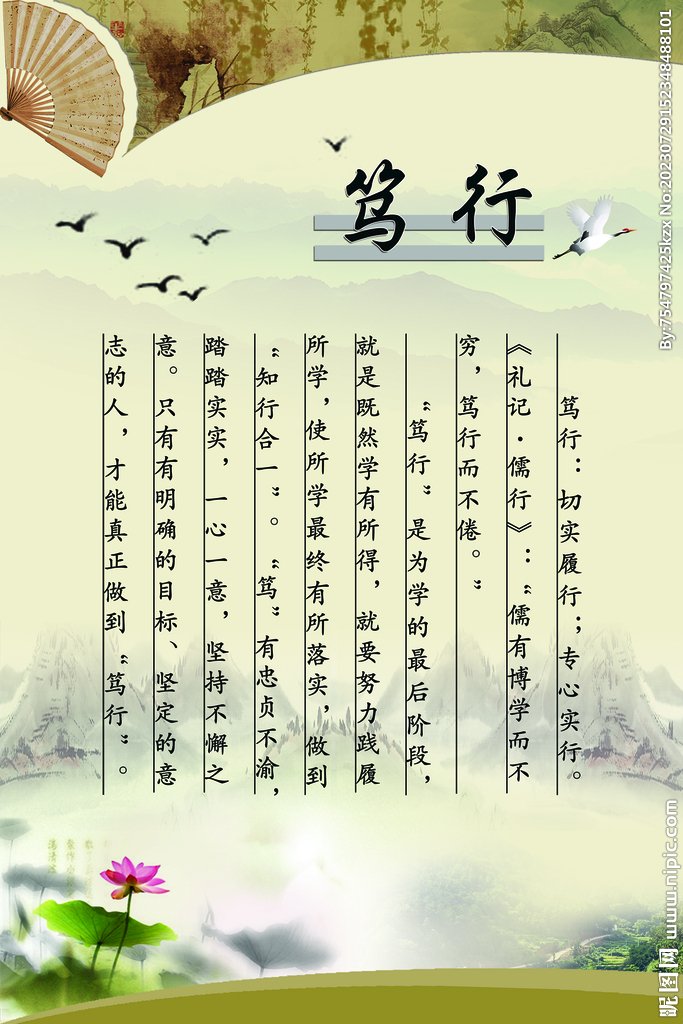 笃行
笃行：切实履行；专心实行。
《礼记·儒行》：“儒有博学而不
穷，笃行而不倦。”
“笃行”是为学的最后阶段，
就是既然学有所得，就要努力践履
所学，使所学最终有所落实，做到
“知行合一”。“笃”有忠贞不渝，
踏踏实实，一心一意，坚持不懈之
意。只有有明确的目标、坚定的意
志的人，才能真正做到“笃行”。
By:754797425kzx No:20230729152348488101
昵图网 www.nipic.com